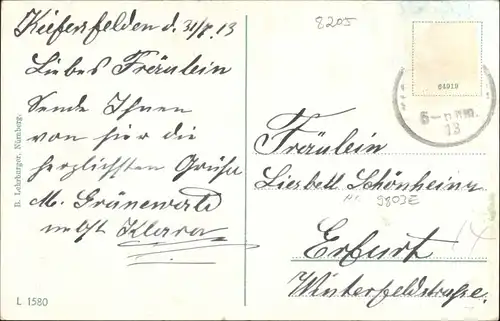 Kiefersfelden d. 31/7. 13
Liebes Fräulein
Sende Ihnen
von hier die
herzlichsten Grüße
M. Grünewald
nebst Klara
B. Lehrburger, Nürnberg.
L 1580
8205
64919
6-7 nm.
13
Fräulein
Liesbett Schönheinz
9803E
Erfurt
Winterfeldstraße.